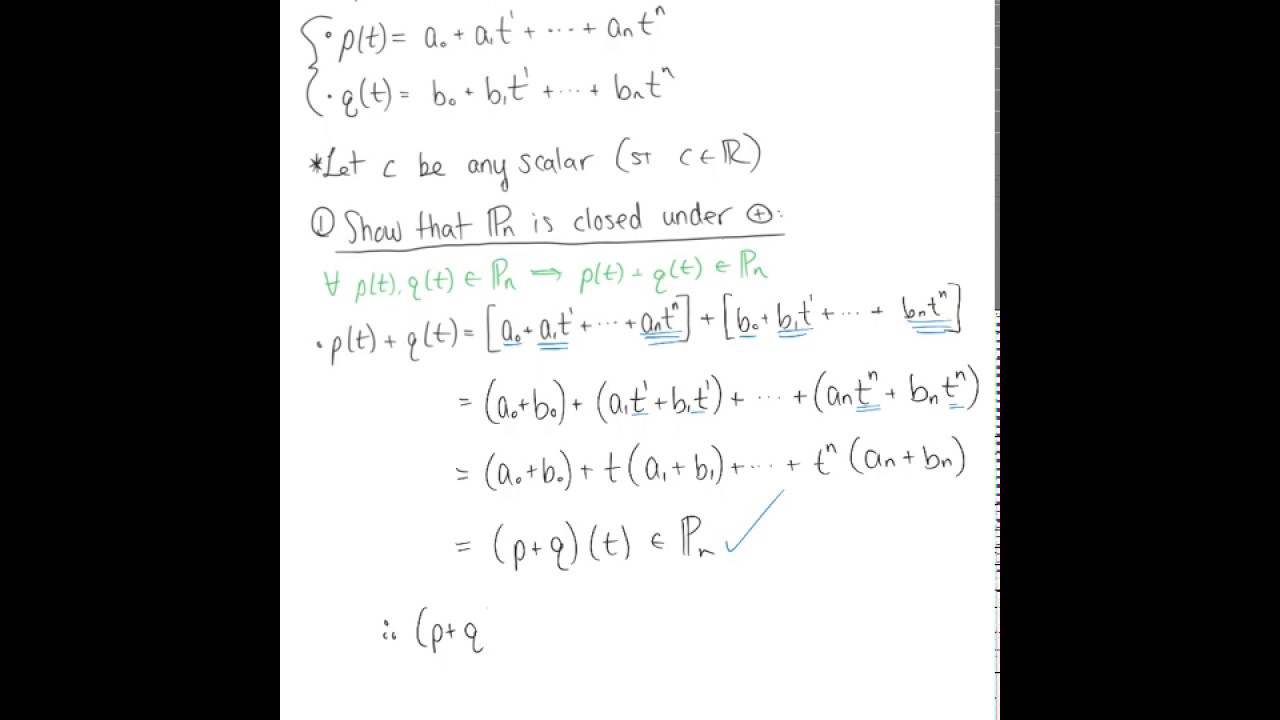 • p(t) = a₀ + a₁t¹ + ⋯ + aₙtⁿ
• q(t) = b₀ + b₁t¹ + ⋯ + bₙtⁿ
*Let c be any scalar (st c ∈ ℝ)
① Show that ℙₙ is closed under ⊕:
∀ p(t), q(t) ∈ ℙₙ ⟹ p(t) + q(t) ∈ ℙₙ
• p(t) + q(t) = [a₀ + a₁t¹ + ⋯ + aₙtⁿ] + [b₀ + b₁t¹ + ⋯ + bₙtⁿ]
= (a₀+b₀) + (a₁t¹ + b₁t¹) + ⋯ + (aₙtⁿ + bₙtⁿ)
= (a₀+b₀) + t(a₁ + b₁) + ⋯ + tⁿ(aₙ + bₙ)
= (p+q)(t) ∈ ℙₙ ✓
∴ (p+q